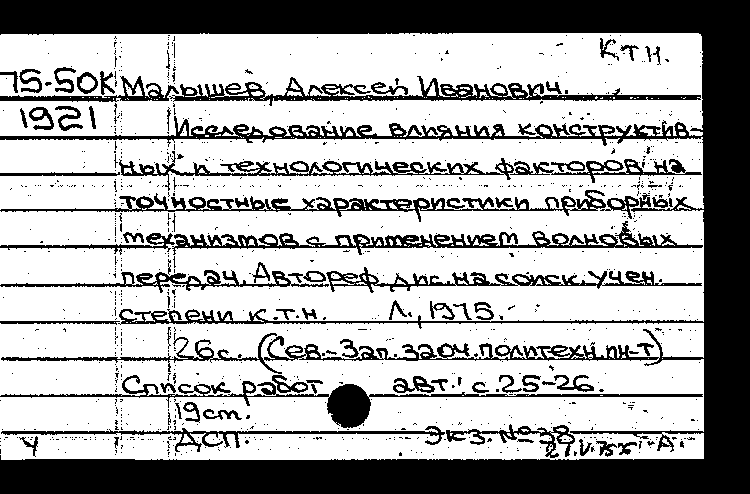 К.Т.Н.
75-50К Малышев, Алексей Иванович.
1921 Исследование влияния конструктив-
ных и технологических факторов на
точностные характеристики приборных
механизмов с применением волновых
передач. Автореф. дис. на соиск. учен.
степени к.т.н. Л., 1975.
26с. (Сев.-Зап. заоч. политехн. ин-т)
Список работ авт.: с. 25-26.
19ст.
ДСП. Экз. №38
Ч